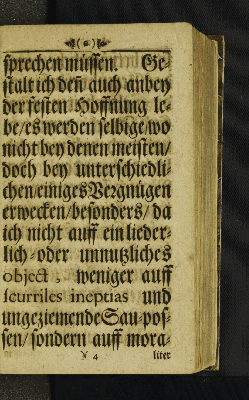 (o)
sprechen müssen. Ge-
stalt ich deñ auch anbey
der festen Hoffnung le-
be/es werden selbige/wo
nicht bey denen meisten/
doch bey unterschiedli-
chen/einiges Vergnügen
erwecken/besonders/da
ich nicht auff ein lieder-
lich-oder unnutzliches
object, weniger auff
scurriles ineptias und
ungeziemende Sau-pos-
sen/sondern auff mora-
4 liter